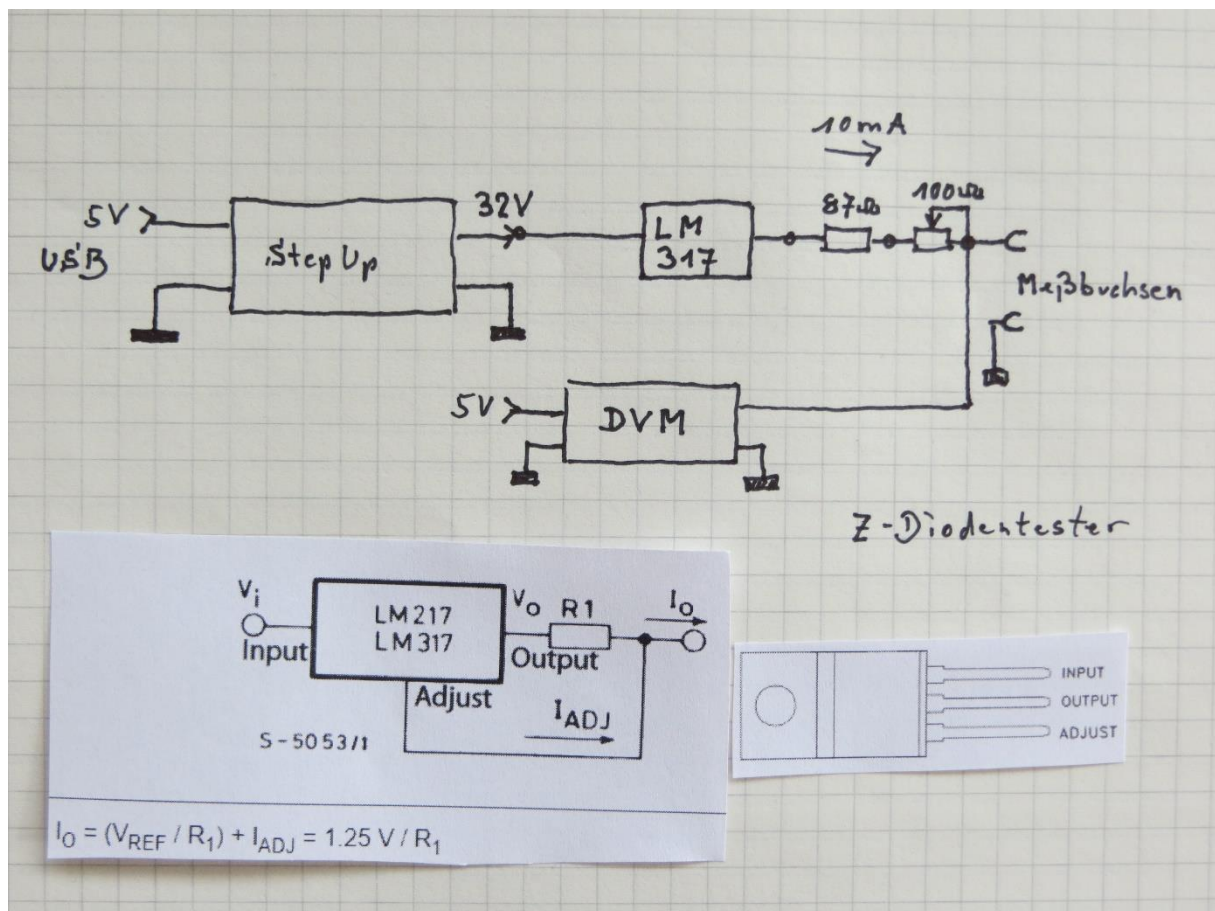 10mA
5V
USB
Step Up
32V
LM
317
87Ω
100Ω
Meßbuchsen
5V
DVM
Z-Diodentester
Vi
Input
LM217
LM317
VO
Output
R1
IO
Adjust
IADJ
S-5053/1
IO = (VREF / R1) + IADJ = 1.25 V / R1
INPUT
OUTPUT
ADJUST